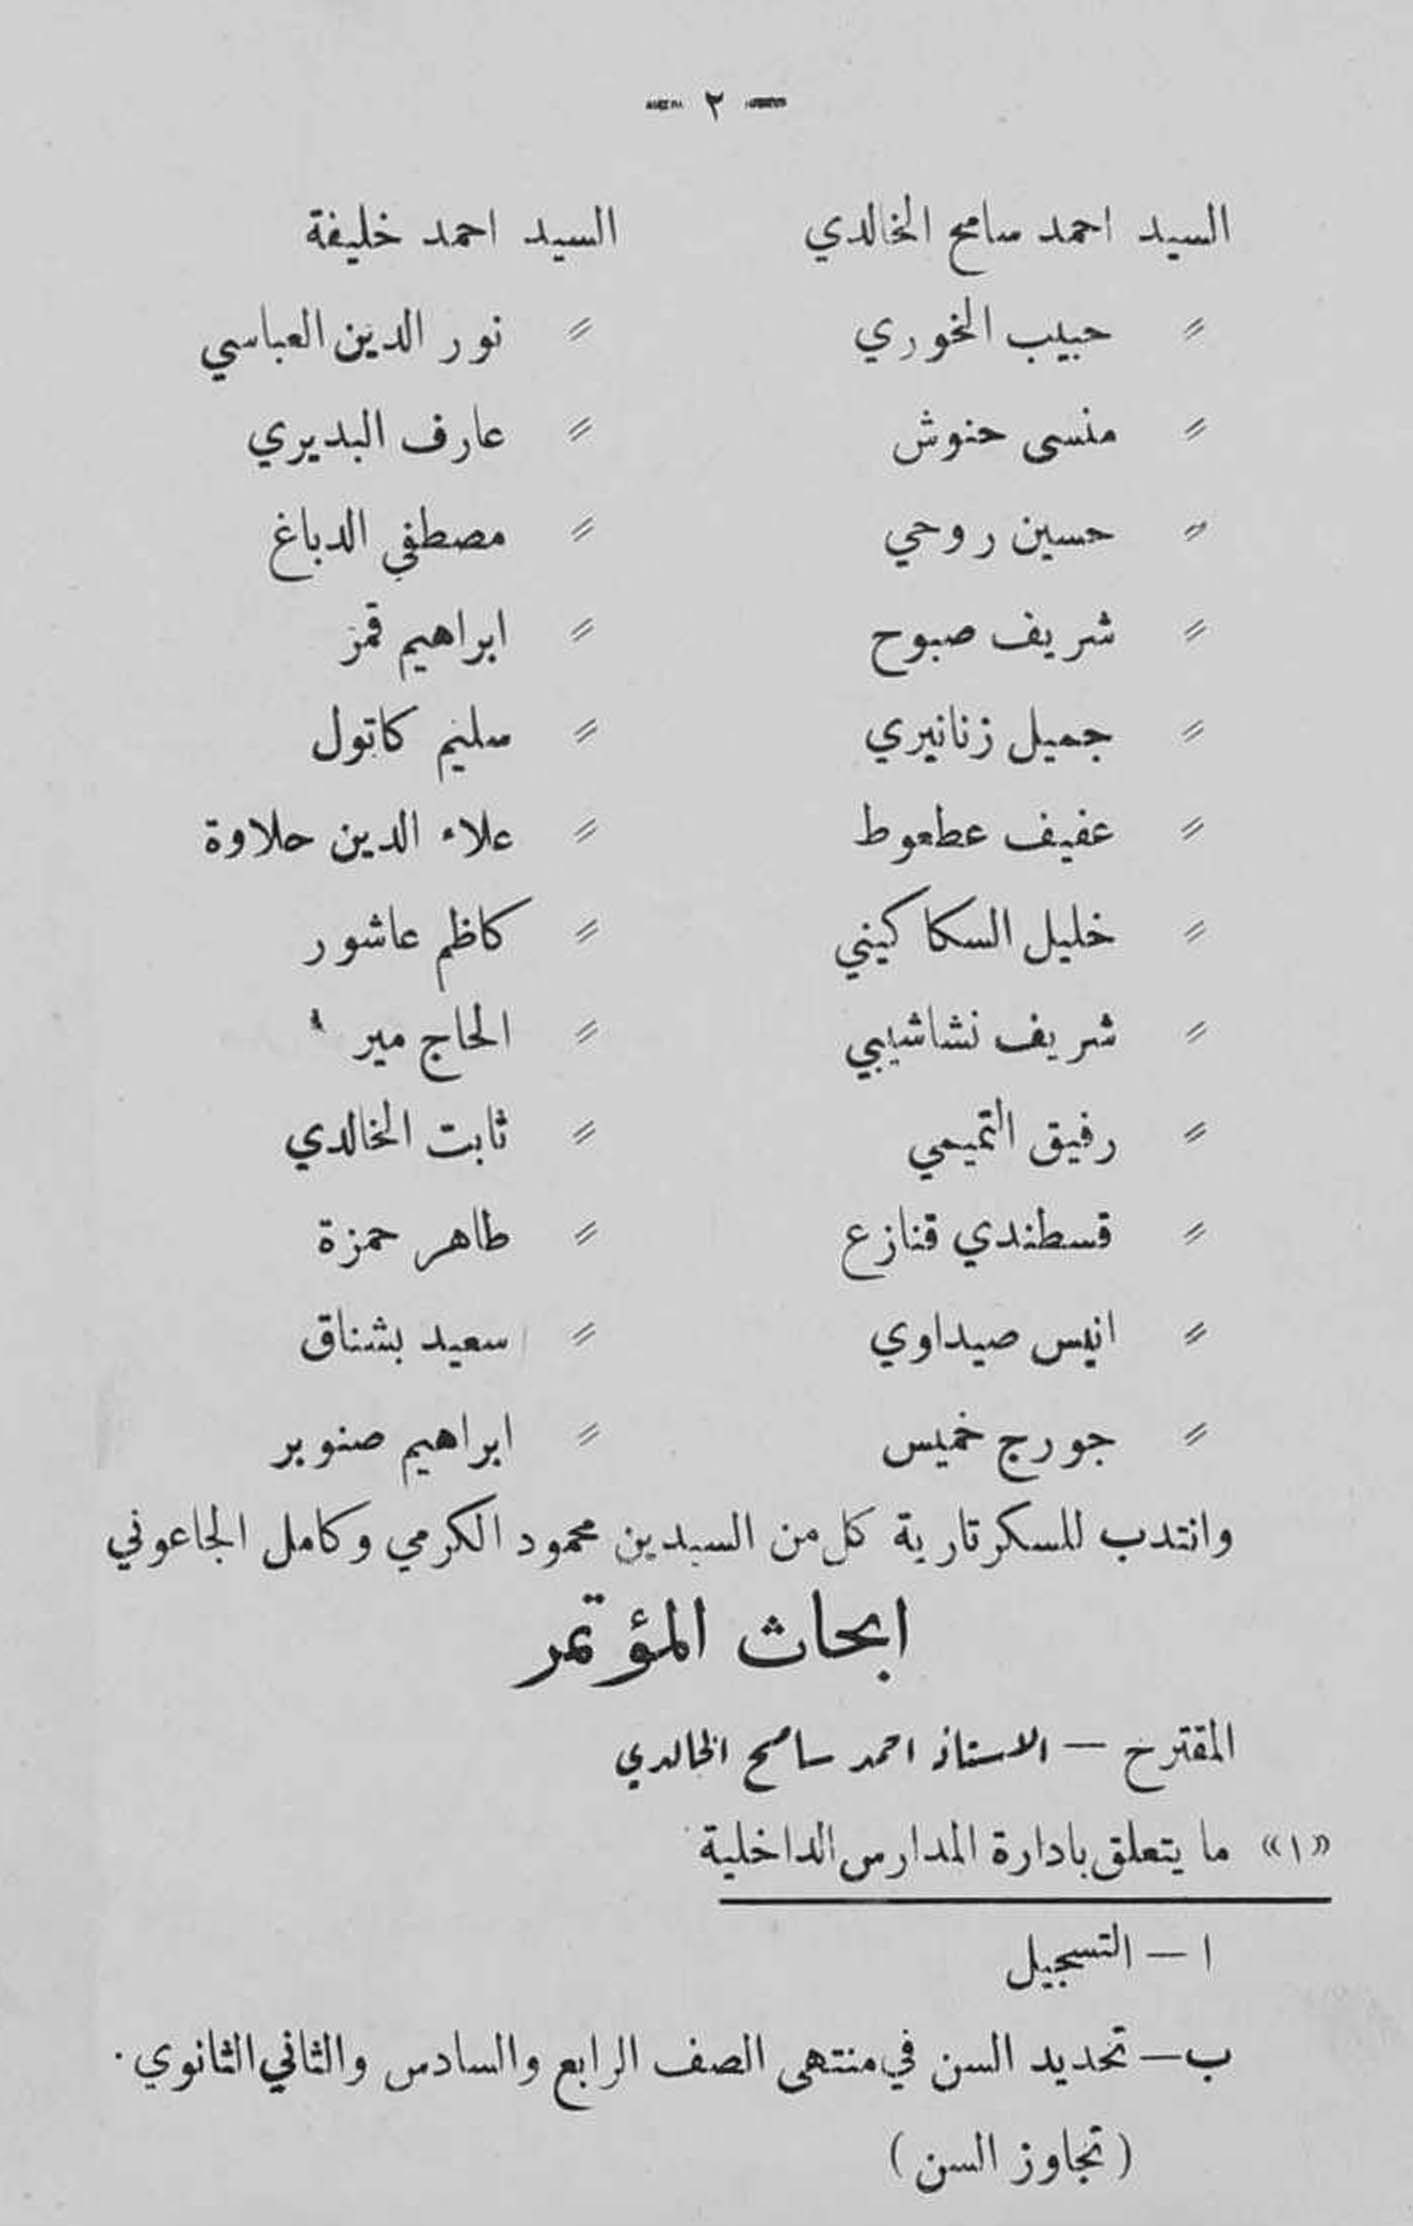 — ٢ —
السيد احمد سامح الخالدي    السيد احمد خليفة
〃 حبيب الخوري    〃 نور الدين العباسي
〃 منسى حنوش    〃 عارف البديري
〃 حسين روحي    〃 مصطفي الدباغ
〃 شريف صبوح    〃 ابراهيم قمز
〃 جميل زنانيري    〃 سليم كاتول
〃 عفيف عطعوط    〃 علاء الدين حلاوة
〃 خليل السكاكيني    〃 كاظم عاشور
〃 شريف نشاشيبي    〃 الحاج مير
〃 رفيق التميمي    〃 ثابت الخالدي
〃 قسطندي قنازع    〃 طاهر حمزة
〃 انيس صيداوي    〃 سعيد بشناق
〃 جورج خميس    〃 ابراهيم صنوبر
وانتدب للسكرتارية كل من السيدين محمود الكرمي وكامل الجاعوني
ابحاث المؤتمر
المقترح — الاستاذ احمد سامح الخالدي
«١» ما يتعلق بادارة المدارس الداخلية
ا — التسجيل
ب — تحديد السن في منتهى الصف الرابع والسادس والثاني الثانوي.
(تجاوز السن)